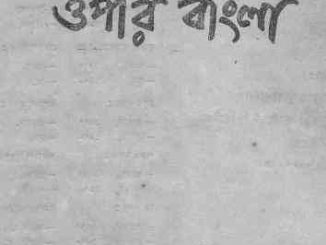 ওপার বাংলা